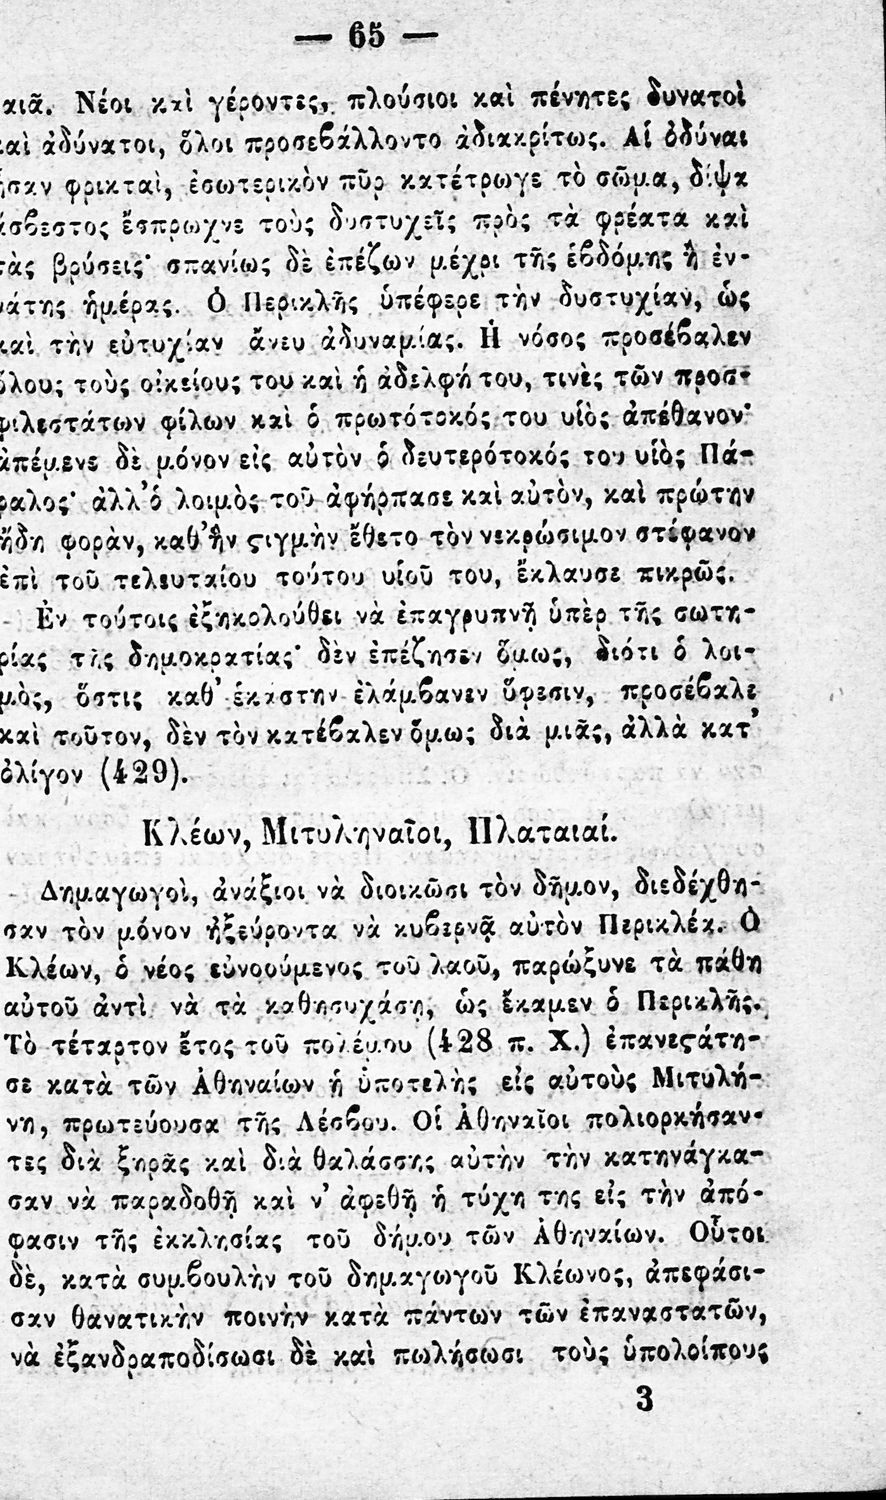 — 65 —
αιᾶ. Νέοι καὶ γέροντες, πλούσιοι καὶ πένητες δυνατοὶ
αὶ ἀδύνατοι, ὅλοι προσεϐάλλοντο ἀδιακρίτως. Αἱ ὀδύναι
ἦσαν φρικταὶ, ἐσωτερικὸν πῦρ κατέτρωγε τὸ σῶμα, δίψα
ἄσϐεστος ἔσπρωχνε τοὺς δυστυχεῖς πρὸς τὰ φρέατα καὶ
τὰς βρύσεις· σπανίως δὲ ἐπέζων μέχρι τῆς ἑϐδόμης ἢ ἐν-
νάτης ἡμέρας. Ὁ Περικλῆς ὑπέφερε τὴν δυστυχίαν, ὡς
καὶ τὴν εὐτυχίαν ἄνευ ἀδυναμίας. Ἡ νόσος προσέϐαλεν
ὅλους τοὺς οἰκείους του καὶ ἡ ἀδελφή του, τινὲς τῶν προσ-
φιλεστάτων φίλων καὶ ὁ πρωτότοκός του υἱὸς ἀπέθανον·
ἀπέμενε δὲ μόνον εἰς αὐτὸν ὁ δευτερότοκός του υἱὸς Πά-
ραλος· ἀλλ' ὁ λοιμὸς τοῦ ἀφήρπασε καὶ αὐτὸν, καὶ πρώτην
ἤδη φορὰν, καθ' ἣν ϛιγμὴν ἔθετο τὸν νεκρώσιμον στέφανον
ἐπὶ τοῦ τελευταίου τούτου υἱοῦ του, ἔκλαυσε πικρῶς.
Ἐν τούτοις ἐξηκολούθει νὰ ἐπαγρυπνῇ ὑπὲρ τῆς σωτη-
ρίας τῆς δημοκρατίας· δὲν ἐπέζησεν ὅμως, διότι ὁ λοι-
μὸς, ὅστις καθ' ἑκάστην ἐλάμϐανεν ὕφεσιν, προσέϐαλε
καὶ τοῦτον, δὲν τὸν κατέϐαλεν ὅμως διὰ μιᾶς, ἀλλὰ κατ'
ὀλίγον (429).
Κλέων, Μιτυληναῖοι, Πλαταιαί.
Δημαγωγοὶ, ἀνάξιοι νὰ διοικῶσι τὸν δῆμον, διεδέχθη-
σαν τὸν μόνον ἠξεύροντα νὰ κυϐερνᾷ αὐτὸν Περικλέα. Ὁ
Κλέων, ὁ νέος εὐνοούμενος τοῦ λαοῦ, παρώξυνε τὰ πάθη
αὐτοῦ ἀντὶ νὰ τὰ καθησυχάσῃ, ὡς ἔκαμεν ὁ Περικλῆς.
Τὸ τέταρτον ἔτος τοῦ πολέμου (428 π. Χ.) ἐπανεϛάτη-
σε κατὰ τῶν Ἀθηναίων ἡ ὑποτελὴς εἰς αὐτοὺς Μιτυλή-
νη, πρωτεύουσα τῆς Λέσϐου. Οἱ Ἀθηναῖοι πολιορκήσαν-
τες διὰ ξηρᾶς καὶ διὰ θαλάσσης αὐτὴν τὴν κατηνάγκα-
σαν νὰ παραδοθῇ καὶ ν' ἀφεθῇ ἡ τύχη της εἰς τὴν ἀπό-
φασιν τῆς ἐκκλησίας τοῦ δήμου τῶν Ἀθηναίων. Οὗτοι
δὲ, κατὰ συμϐουλὴν τοῦ δημαγωγοῦ Κλέωνος, ἀπεφάσι-
σαν θανατικὴν ποινὴν κατὰ πάντων τῶν ἐπαναστατῶν,
νὰ ἐξανδραποδίσωσι δὲ καὶ πωλήσωσι τοὺς ὑπολοίπους
3